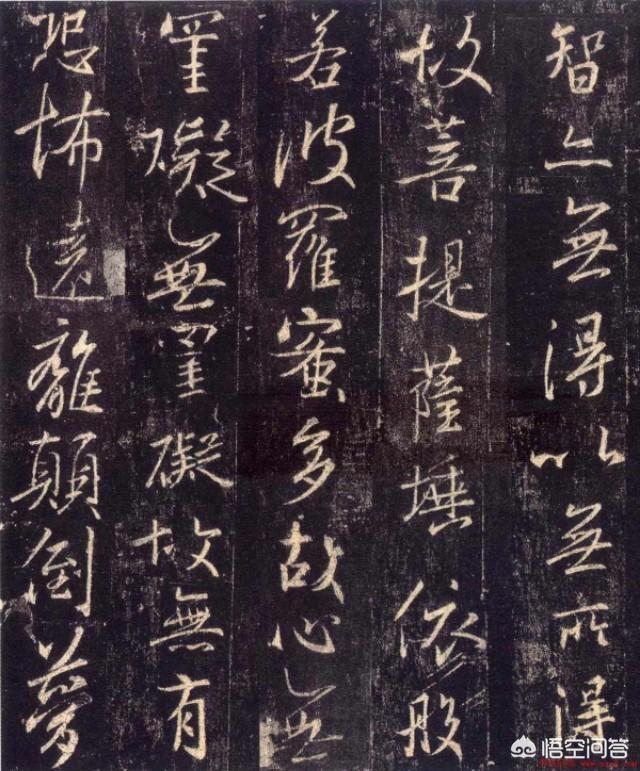 智亦無得以無所得
故菩提薩埵依般
若波羅蜜多故心無
罣礙無罣礙故無有
恐怖遠離顛倒夢
悟空问答